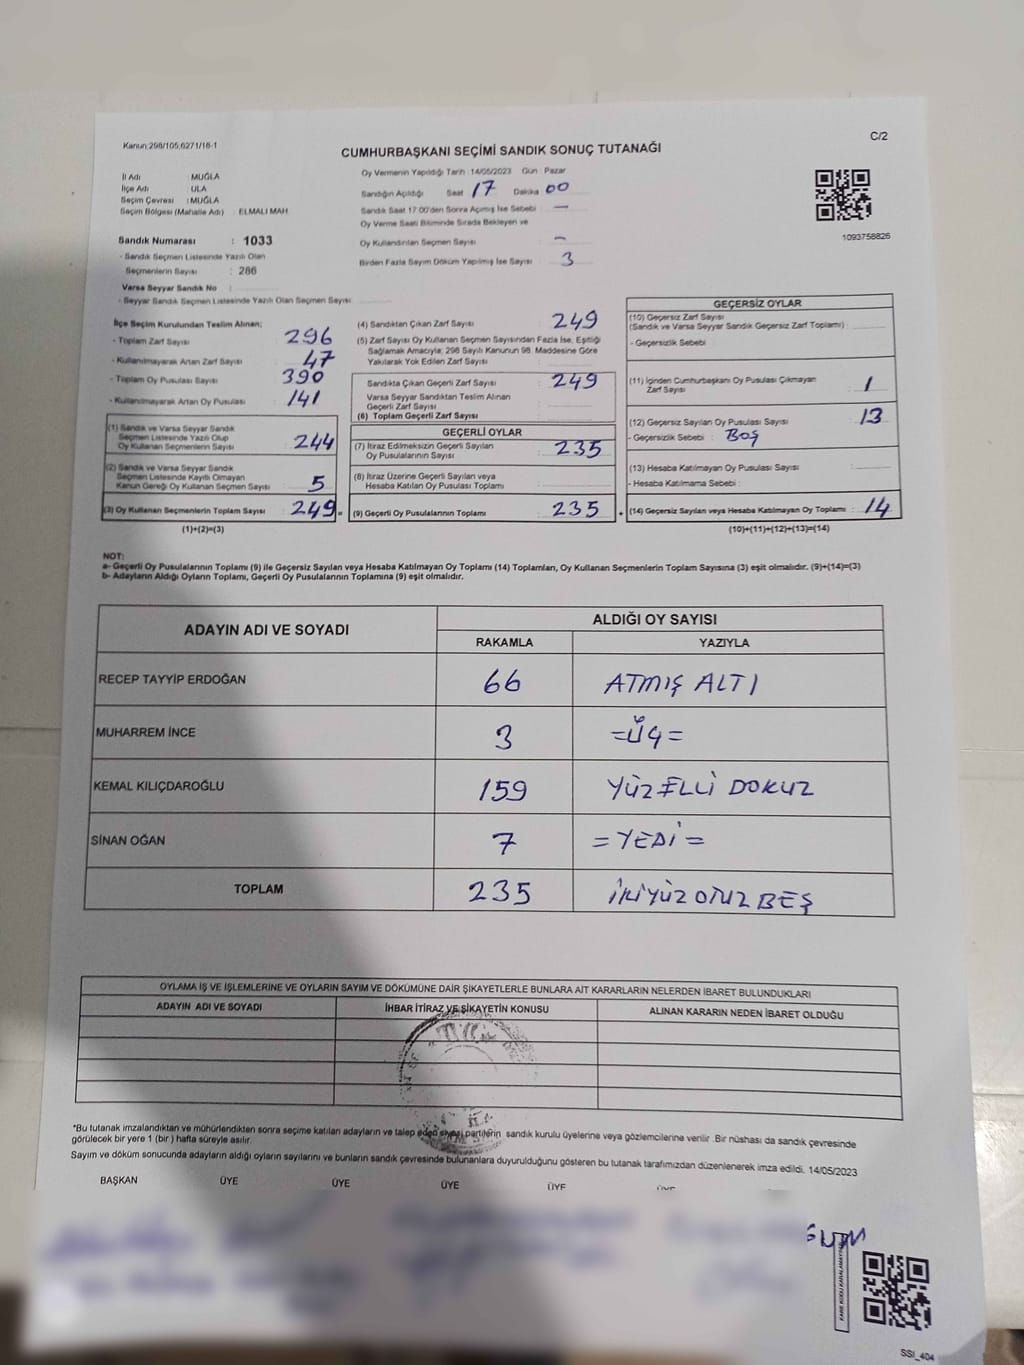 Kanun:298/105,6271/16-1
C/2
CUMHURBAŞKANI SEÇİMİ SANDIK SONUÇ TUTANAĞI
İl Adı : MUĞLA
İlçe Adı : ULA
Seçim Çevresi : MUĞLA
Seçim Bölgesi (Mahalle Adı) : ELMALI MAH
Oy Vermenin Yapıldığı Tarih :14/05/2023 Gün : Pazar
Sandığın Açıldığı Saat 17 Dakika 00
Sandık Saat 17:00'den Sonra Açımış İse Sebebi : —
Oy Verme Saati Bitiminde Sırada Bekleyen ve
Oy Kullandırılan Seçmen Sayısı : -
Birden Fazla Sayım Döküm Yapılmış İse Sayısı : 3
1093758826
Sandık Numarası : 1033
- Sandık Seçmen Listesinde Yazılı Olan
Seçmenlerin Sayısı : 286
Varsa Seyyar Sandık No :
- Seyyar Sandık Seçmen Listesinde Yazılı Olan Seçmen Sayısı :
İlçe Seçim Kurulundan Teslim Alınan;
- Toplam Zarf Sayısı : 296
- Kullanılmayarak Artan Zarf Sayısı : 47
- Toplam Oy Pusulası Sayısı : 390
- Kullanılmayarak Artan Oy Pusulası : 141
(1) Sandık ve Varsa Seyyar Sandık
Seçmen Listesinde Yazılı Olup
Oy Kullanan Seçmenlerin Sayısı : 244
(2) Sandık ve Varsa Seyyar Sandık
Seçmen Listesinde Kayıtlı Olmayan
Kanun Gereği Oy Kullanan Seçmen Sayısı : 5
(3) Oy Kullanan Seçmenlerin Toplam Sayısı : 249 =
(1)+(2)=(3)
(4) Sandıktan Çıkan Zarf Sayısı : 249
(5) Zarf Sayısı Oy Kullanan Seçmen Sayısından Fazla İse, Eşitliği
Sağlamak Amacıyla; 298 Sayılı Kanunun 98. Maddesine Göre
Yakılarak Yok Edilen Zarf Sayısı :
Sandıkta Çıkan Geçerli Zarf Sayısı : 249
Varsa Seyyar Sandıktan Teslim Alınan
Geçerli Zarf Sayısı :
(6) Toplam Geçerli Zarf Sayısı :
GEÇERLİ OYLAR
(7) İtiraz Edilmeksizin Geçerli Sayılan
Oy Pusulalarının Sayısı : 235
(8) İtiraz Üzerine Geçerli Sayılan veya
Hesaba Katılan Oy Pusulası Toplamı :
(9) Geçerli Oy Pusulalarının Toplamı : 235 +
GEÇERSİZ OYLAR
(10) Geçersiz Zarf Sayısı
(Sandık ve Varsa Seyyar Sandık Geçersiz Zarf Toplamı) :
- Geçersizlik Sebebi :
(11) İçinden Cumhurbaşkanı Oy Pusulası Çıkmayan
Zarf Sayısı : 1
(12) Geçersiz Sayılan Oy Pusulası Sayısı : 13
- Geçersizlik Sebebi : BOŞ
(13) Hesaba Katılmayan Oy Pusulası Sayısı :
- Hesaba Katılmama Sebebi :
(14) Geçersiz Sayılan veya Hesaba Katılmayan Oy Toplamı : 14
(10)+(11)+(12)+(13)=(14)
NOT:
a- Geçerli Oy Pusulalarının Toplamı (9) ile Geçersiz Sayılan veya Hesaba Katılmayan Oy Toplamı (14) Toplamları, Oy Kullanan Seçmenlerin Toplam Sayısına (3) eşit olmalıdır. (9)+(14)=(3)
b- Adayların Aldığı Oyların Toplamı, Geçerli Oy Pusulalarının Toplamına (9) eşit olmalıdır.
ADAYIN ADI VE SOYADI
ALDIĞI OY SAYISI
RAKAMLA YAZIYLA
RECEP TAYYİP ERDOĞAN 66 ATMIŞ ALTI
MUHARREM İNCE 3 =ÜÇ=
KEMAL KILIÇDAROĞLU 159 YÜZELLİ DOKUZ
SİNAN OĞAN 7 =YEDİ=
TOPLAM 235 İKİYÜZ OTUZ BEŞ
OYLAMA İŞ VE İŞLEMLERİNE VE OYLARIN SAYIM VE DÖKÜMÜNE DAİR ŞİKAYETLERLE BUNLARA AİT KARARLARIN NELERDEN İBARET BULUNDUKLARI
ADAYIN ADI VE SOYADI İHBAR İTİRAZ VE ŞİKAYETİN KONUSU ALINAN KARARIN NEDEN İBARET OLDUĞU
*Bu tutanak imzalandıktan ve mühürlendikten sonra seçime katılan adayların ve talep eden siyasi partilerin sandık kurulu üyelerine veya gözlemcilerine verilir. Bir nüshası da sandık çevresinde
görülecek bir yere 1 (bir) hafta süreyle asılır.
Sayım ve döküm sonucunda adayların aldığı oyların sayılarını ve bunların sandık çevresinde bulunanlara duyurulduğunu gösteren bu tutanak tarafımızdan düzenlenerek imza edildi. 14/05/2023
BAŞKAN ÜYE ÜYE ÜYE ÜYE
SSI_404